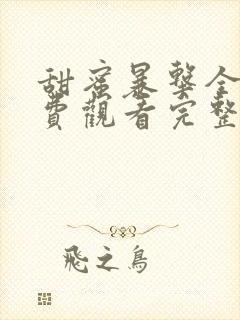 甜蜜暴擊全
費觀看完整
飛之鳥